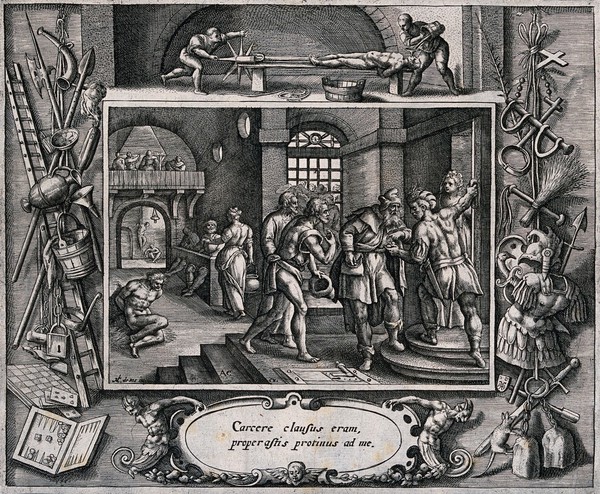 AC
Carcere clausus eram,
properastis protinus ad me.